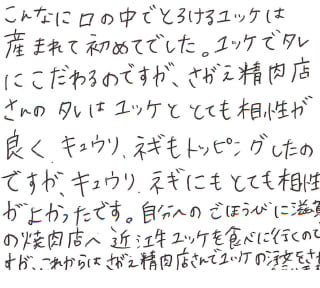 こんなに口の中でとろけるユッケは
産まれて初めてでした。ユッケでタレ
にこだわるのですが、さがえ精肉店
さんのタレはユッケととても相性が
良く、キュウリ、ネギもトッピングしたの
ですが、キュウリ、ネギにもとても相性
がよかったです。自分へのごほうびに滋賀
の焼肉店へ近江牛ユッケを食べに行くので
すが、これからはさがえ精肉店さんでユッケの注文をさせ